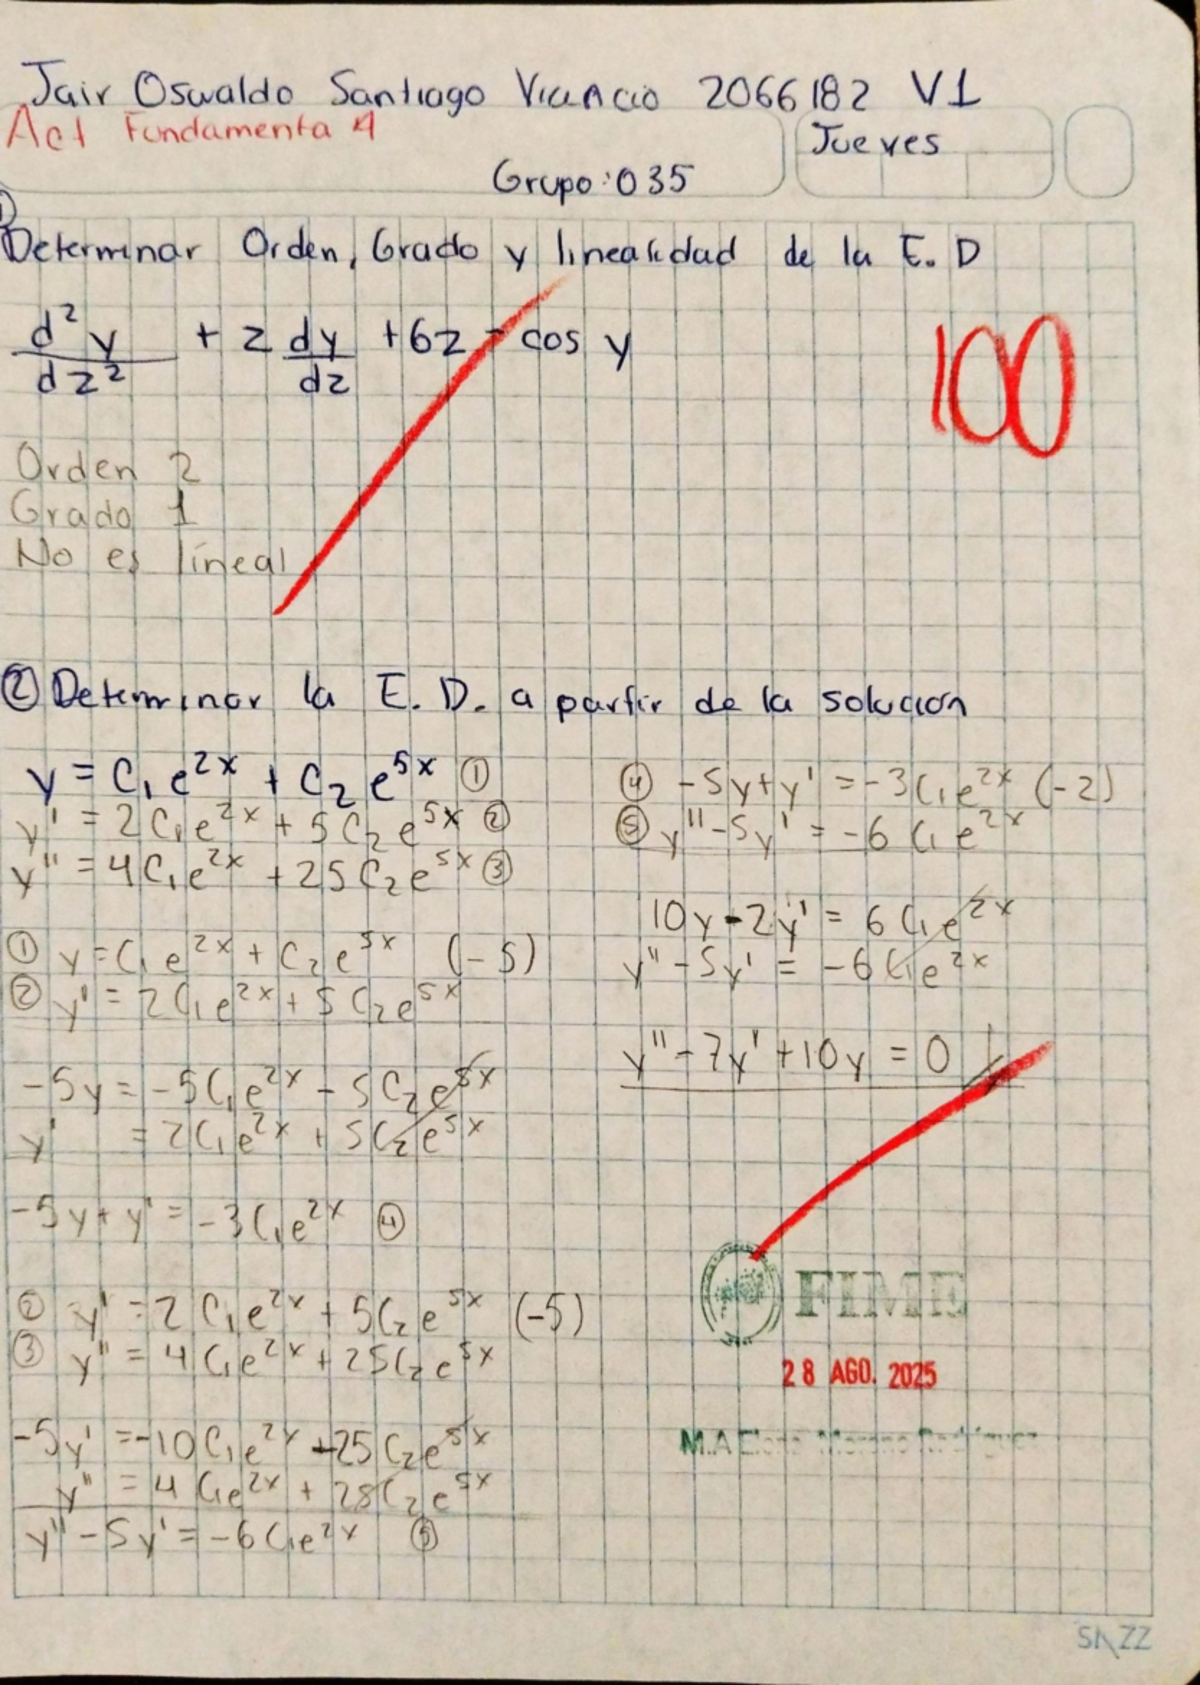 Jair Oswaldo Santiago 2066182 V1
Act Fundamenta 4
Jueves
Grupo: 035
1
Determinar Orden, Grado y linealidad de la E. D
d²y/dz² + z dy/dz + 6z = cos y
100
Orden 2
Grado 1
No es líneal
② Determinar la E. D. a partir de la solución
y = C₁e^2x + C₂e^5x ①
y' = 2C₁e^2x + 5C₂e^5x ②
y'' = 4C₁e^2x + 25C₂e^5x ③
① y = C₁e^2x + C₂e^5x (-5)
② y' = 2C₁e^2x + 5C₂e^5x
-5y = -5C₁e^2x - 5C₂e^5x
y' = 2C₁e^2x + 5C₂e^5x
-5y + y' = -3C₁e^2x ④
② y' = 2C₁e^2x + 5C₂e^5x (-5)
③ y'' = 4C₁e^2x + 25C₂e^5x
-5y' = -10C₁e^2x - 25C₂e^5x
y'' = 4C₁e^2x + 25C₂e^5x
y'' - 5y' = -6C₁e^2x ⑤
④ -5y + y' = -3C₁e^2x (-2)
⑤ y'' - 5y' = -6C₁e^2x
10y - 2y' = 6C₁e^2x
y'' - 5y' = -6C₁e^2x
y'' - 7y' + 10y = 0
FIME
28 AGO. 2025
M.A